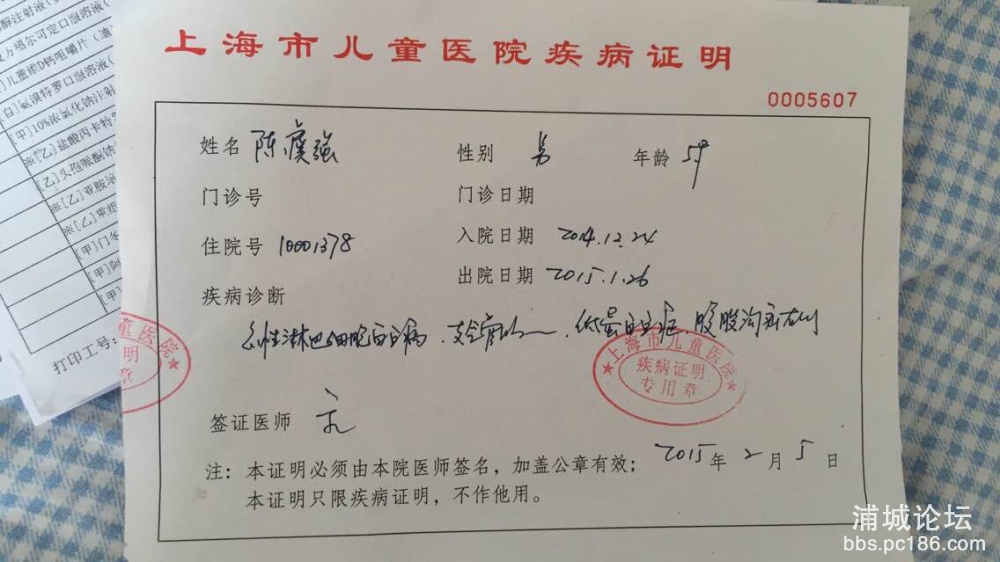 上海市儿童医院疾病证明
0005607
姓名 陈虞强 性别 男 年龄 5岁
门诊号 门诊日期
住院号 10001378 入院日期 2014.12.24
出院日期 2015.1.26
疾病诊断
急性淋巴细胞白血病. 支气管炎 低蛋白血症 腹股沟
上海市儿童医院
疾病证明
专用章
童医院
明
章
签证医师
注：本证明必须由本院医师签名，加盖公章有效；
2015年2月5日
本证明只限疾病证明，不作他用。
打印工号:
酶注射液
儿童维D钙咀嚼片（迪
氨溴特罗口服溶液（
[甲]10%浓氯化钠注射
※[乙]盐酸丙卡特罗
[乙]头孢哌酮钠
※[乙]亚胺
※[乙]重组
[甲]门冬
[甲]阿
[甲]
浦城论坛
bbs.pc186.com